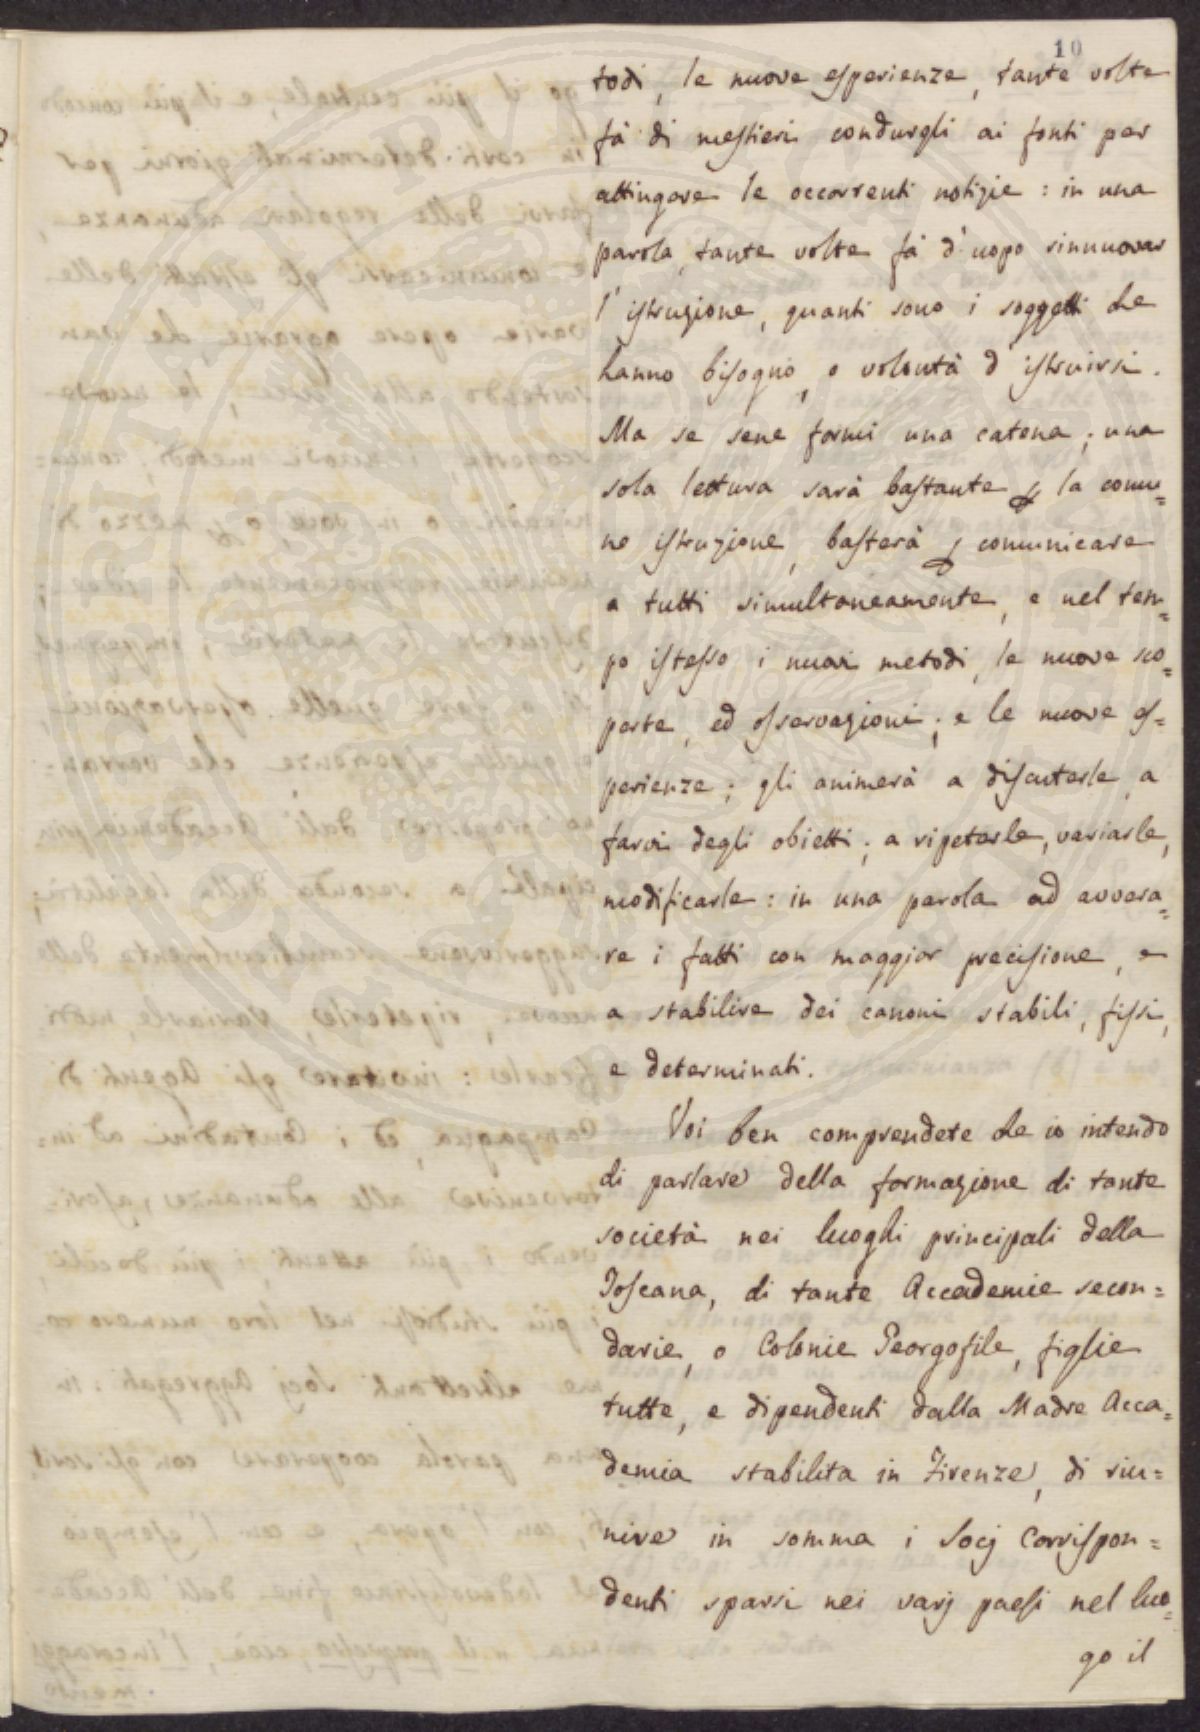 10
todi, le nuove esperienze, tante volte
fà di mestieri condurgli ai fonti per
attingere le occorrenti notizie : in una
parola, tante volte fà d'uopo rinnuovar
l'istruzione, quanti sono i soggetti che
hanno bisogno, o volontà d'istruirsi.
Ma se sene formi una catena; una
sola lettura sarà bastante p la comu=
ne istruzione, basterà p comunicare
a tutti simultaneamente, e nel tem=
po istesso i nuovi metodi, le nuove sco=
perte, ed osservazioni; e le nuove es=
perienze; gli animerà a discuterle, a
farvi degli obietti; a ripeterle, variarle,
modificarle: in una parola ad avvera=
re i fatti con maggior precisione, e
a stabilire dei canoni stabili, fissi,
e determinati.
Voi ben comprendete che io intendo
di parlare della formazione di tante
società nei luoghi principali della
Toscana, di tante Accademie secon=
darie, o Colonie Georgofile, figlie
tutte, e dipendenti dalla Madre Acca=
demia stabilita in Firenze, di riu=
nire in somma i Socj Corrispon=
denti sparsi nei varj paesi nel luo=
go il